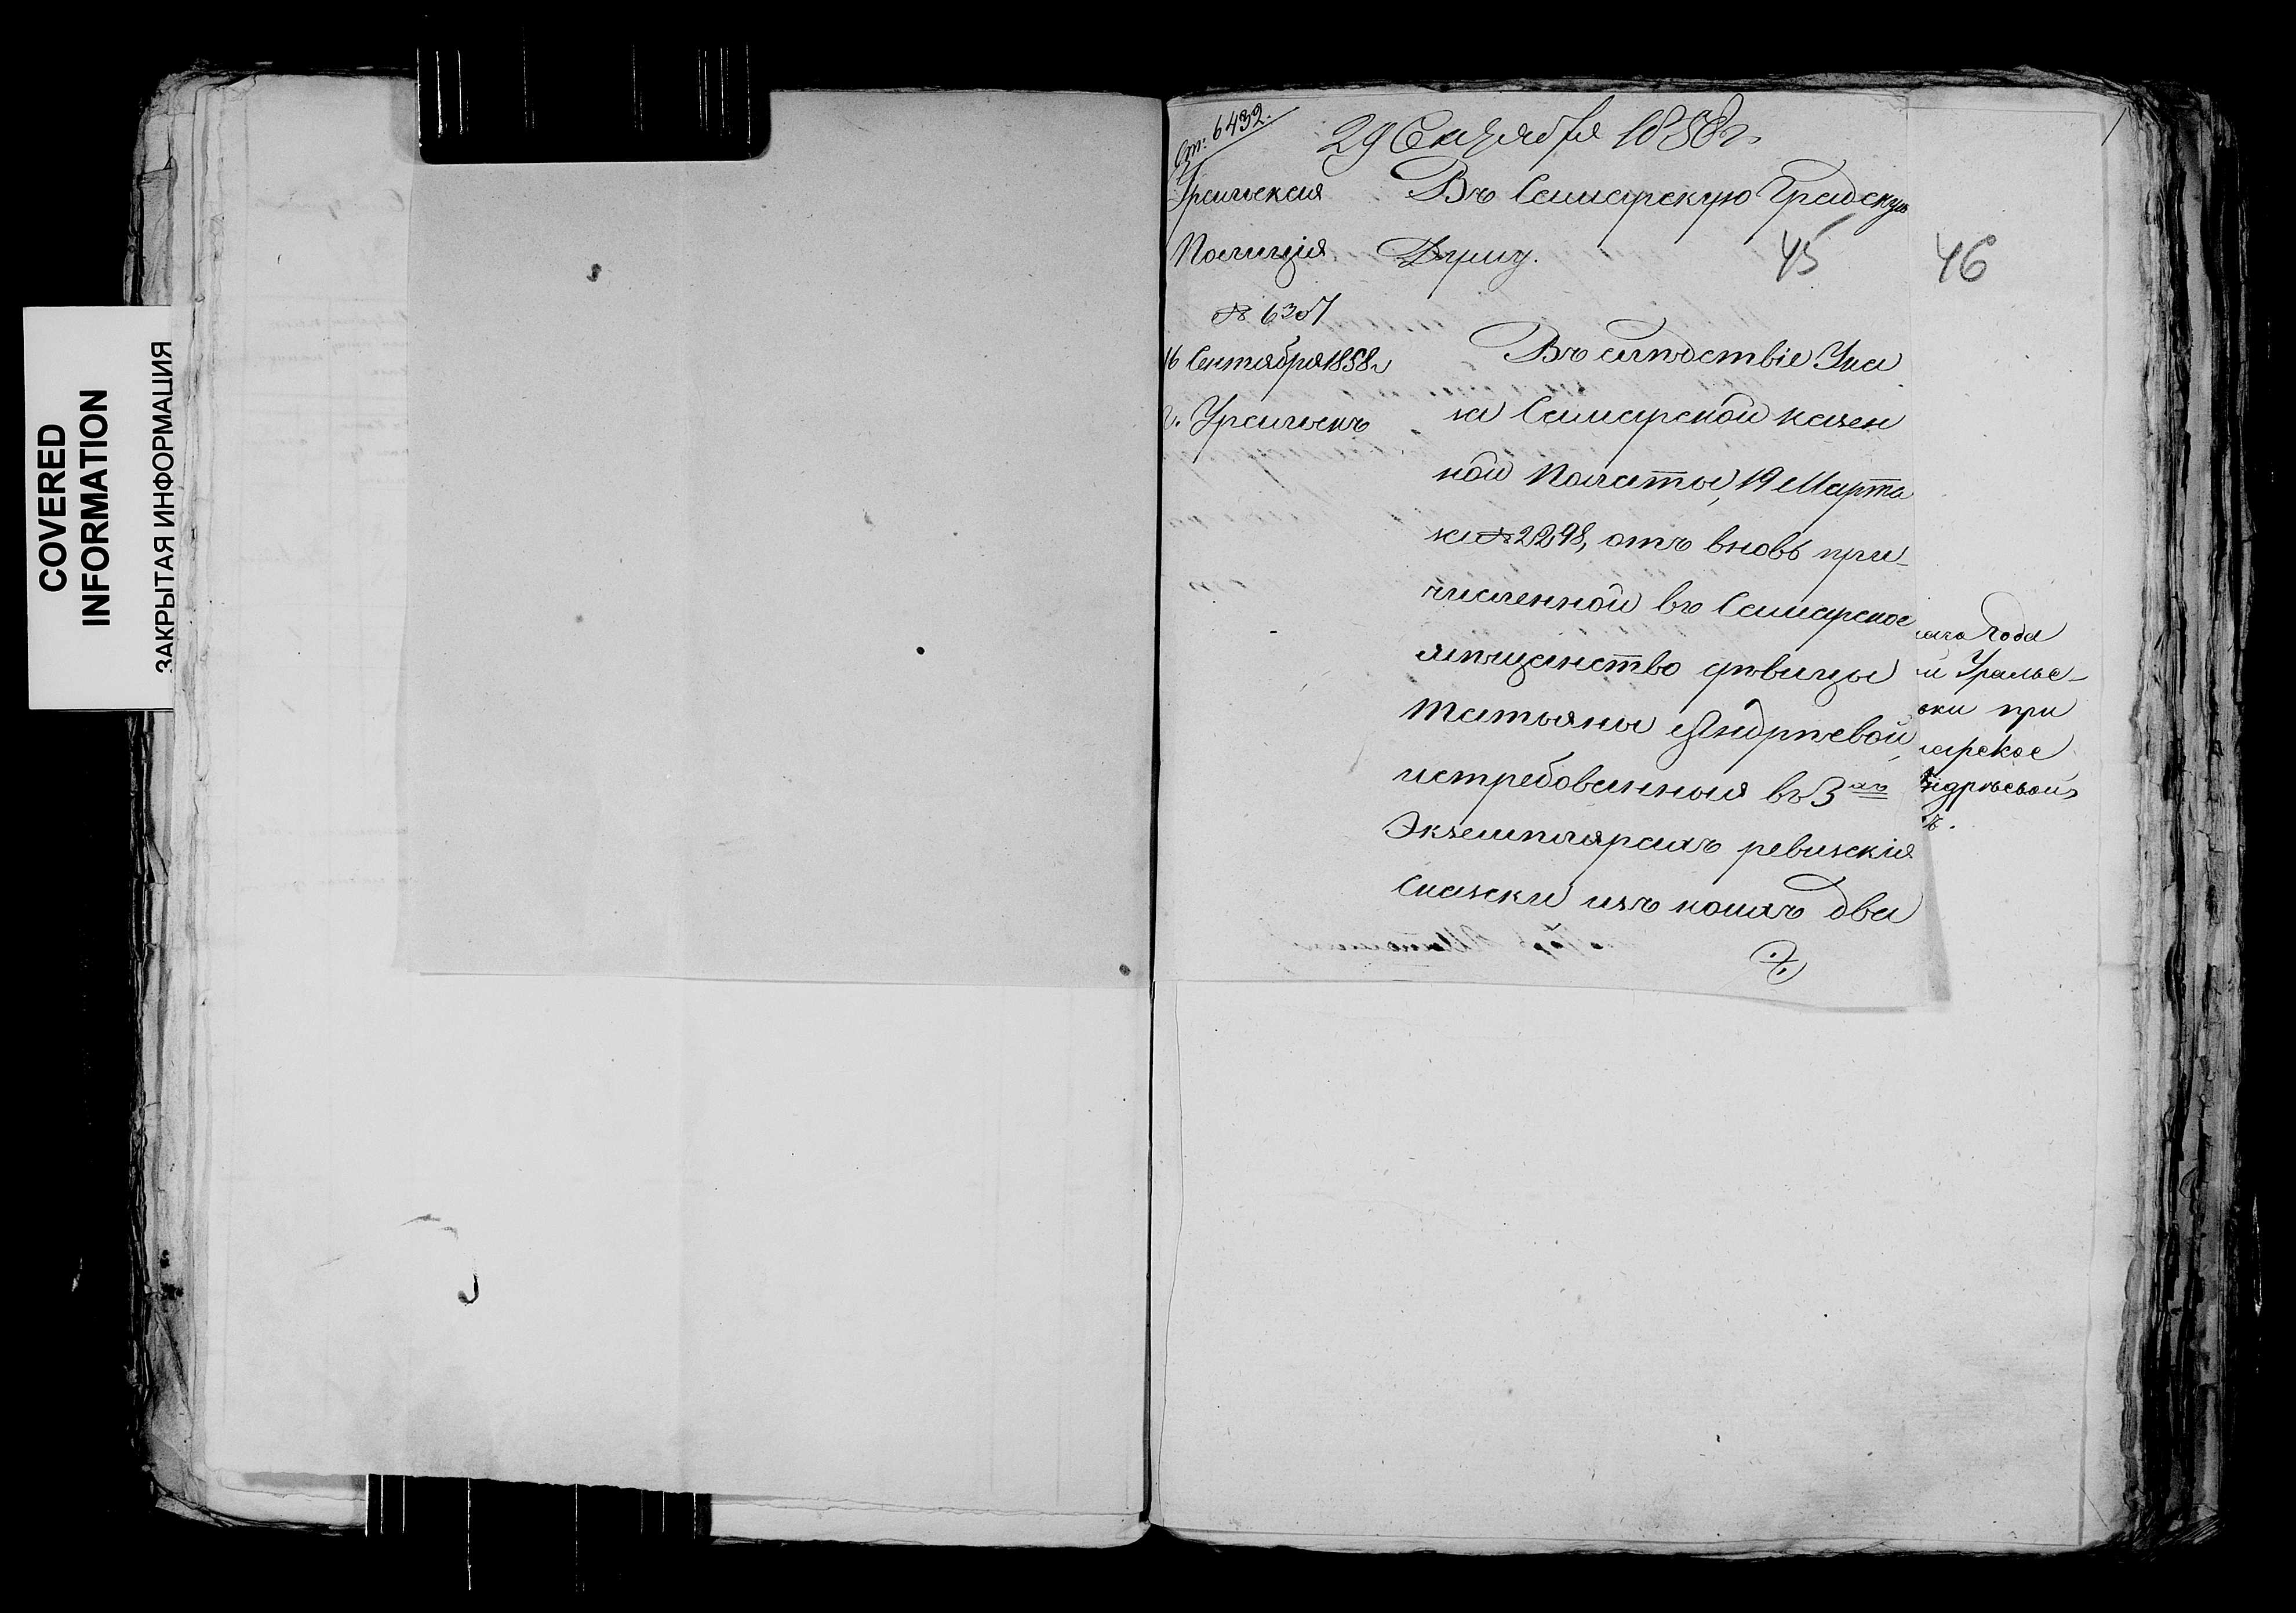 COVERED
INFORMATION
ЗАКРЫТАЯ ИНФОРМАЦИЯ
Ст: 6432.
29 Сентября 1858 г.
Уральская
Полиція
№ 6307
16 Сентября 1858 г
г. Уральскъ
Въ Самарскую Градскую
Думу.
45
46
Въ слѣдствіе Ука
за Самарской казен
ной Палаты, 19 Марта
за № 2298, отъ вновь при-
численной въ Самарское
мѣщанство дѣвицы
Татьяны Андрѣевой,
истребованныя въ 3хъ
Экземплярахъ ревизскія
Сказки изъ коихъ два
года
й Уральс-
зки при
арское
ндрѣевой
ъ.